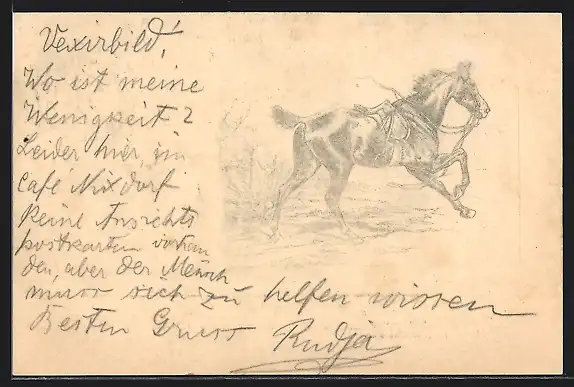 Vexirbild!
Wo ist meine
Wenigkeit?
Leider hier, im
Café Nixdorf
keine Ansichts
postkarten vorhan
den, aber der Mensch
muss sich zu helfen wissen
Besten Gruss Rudja